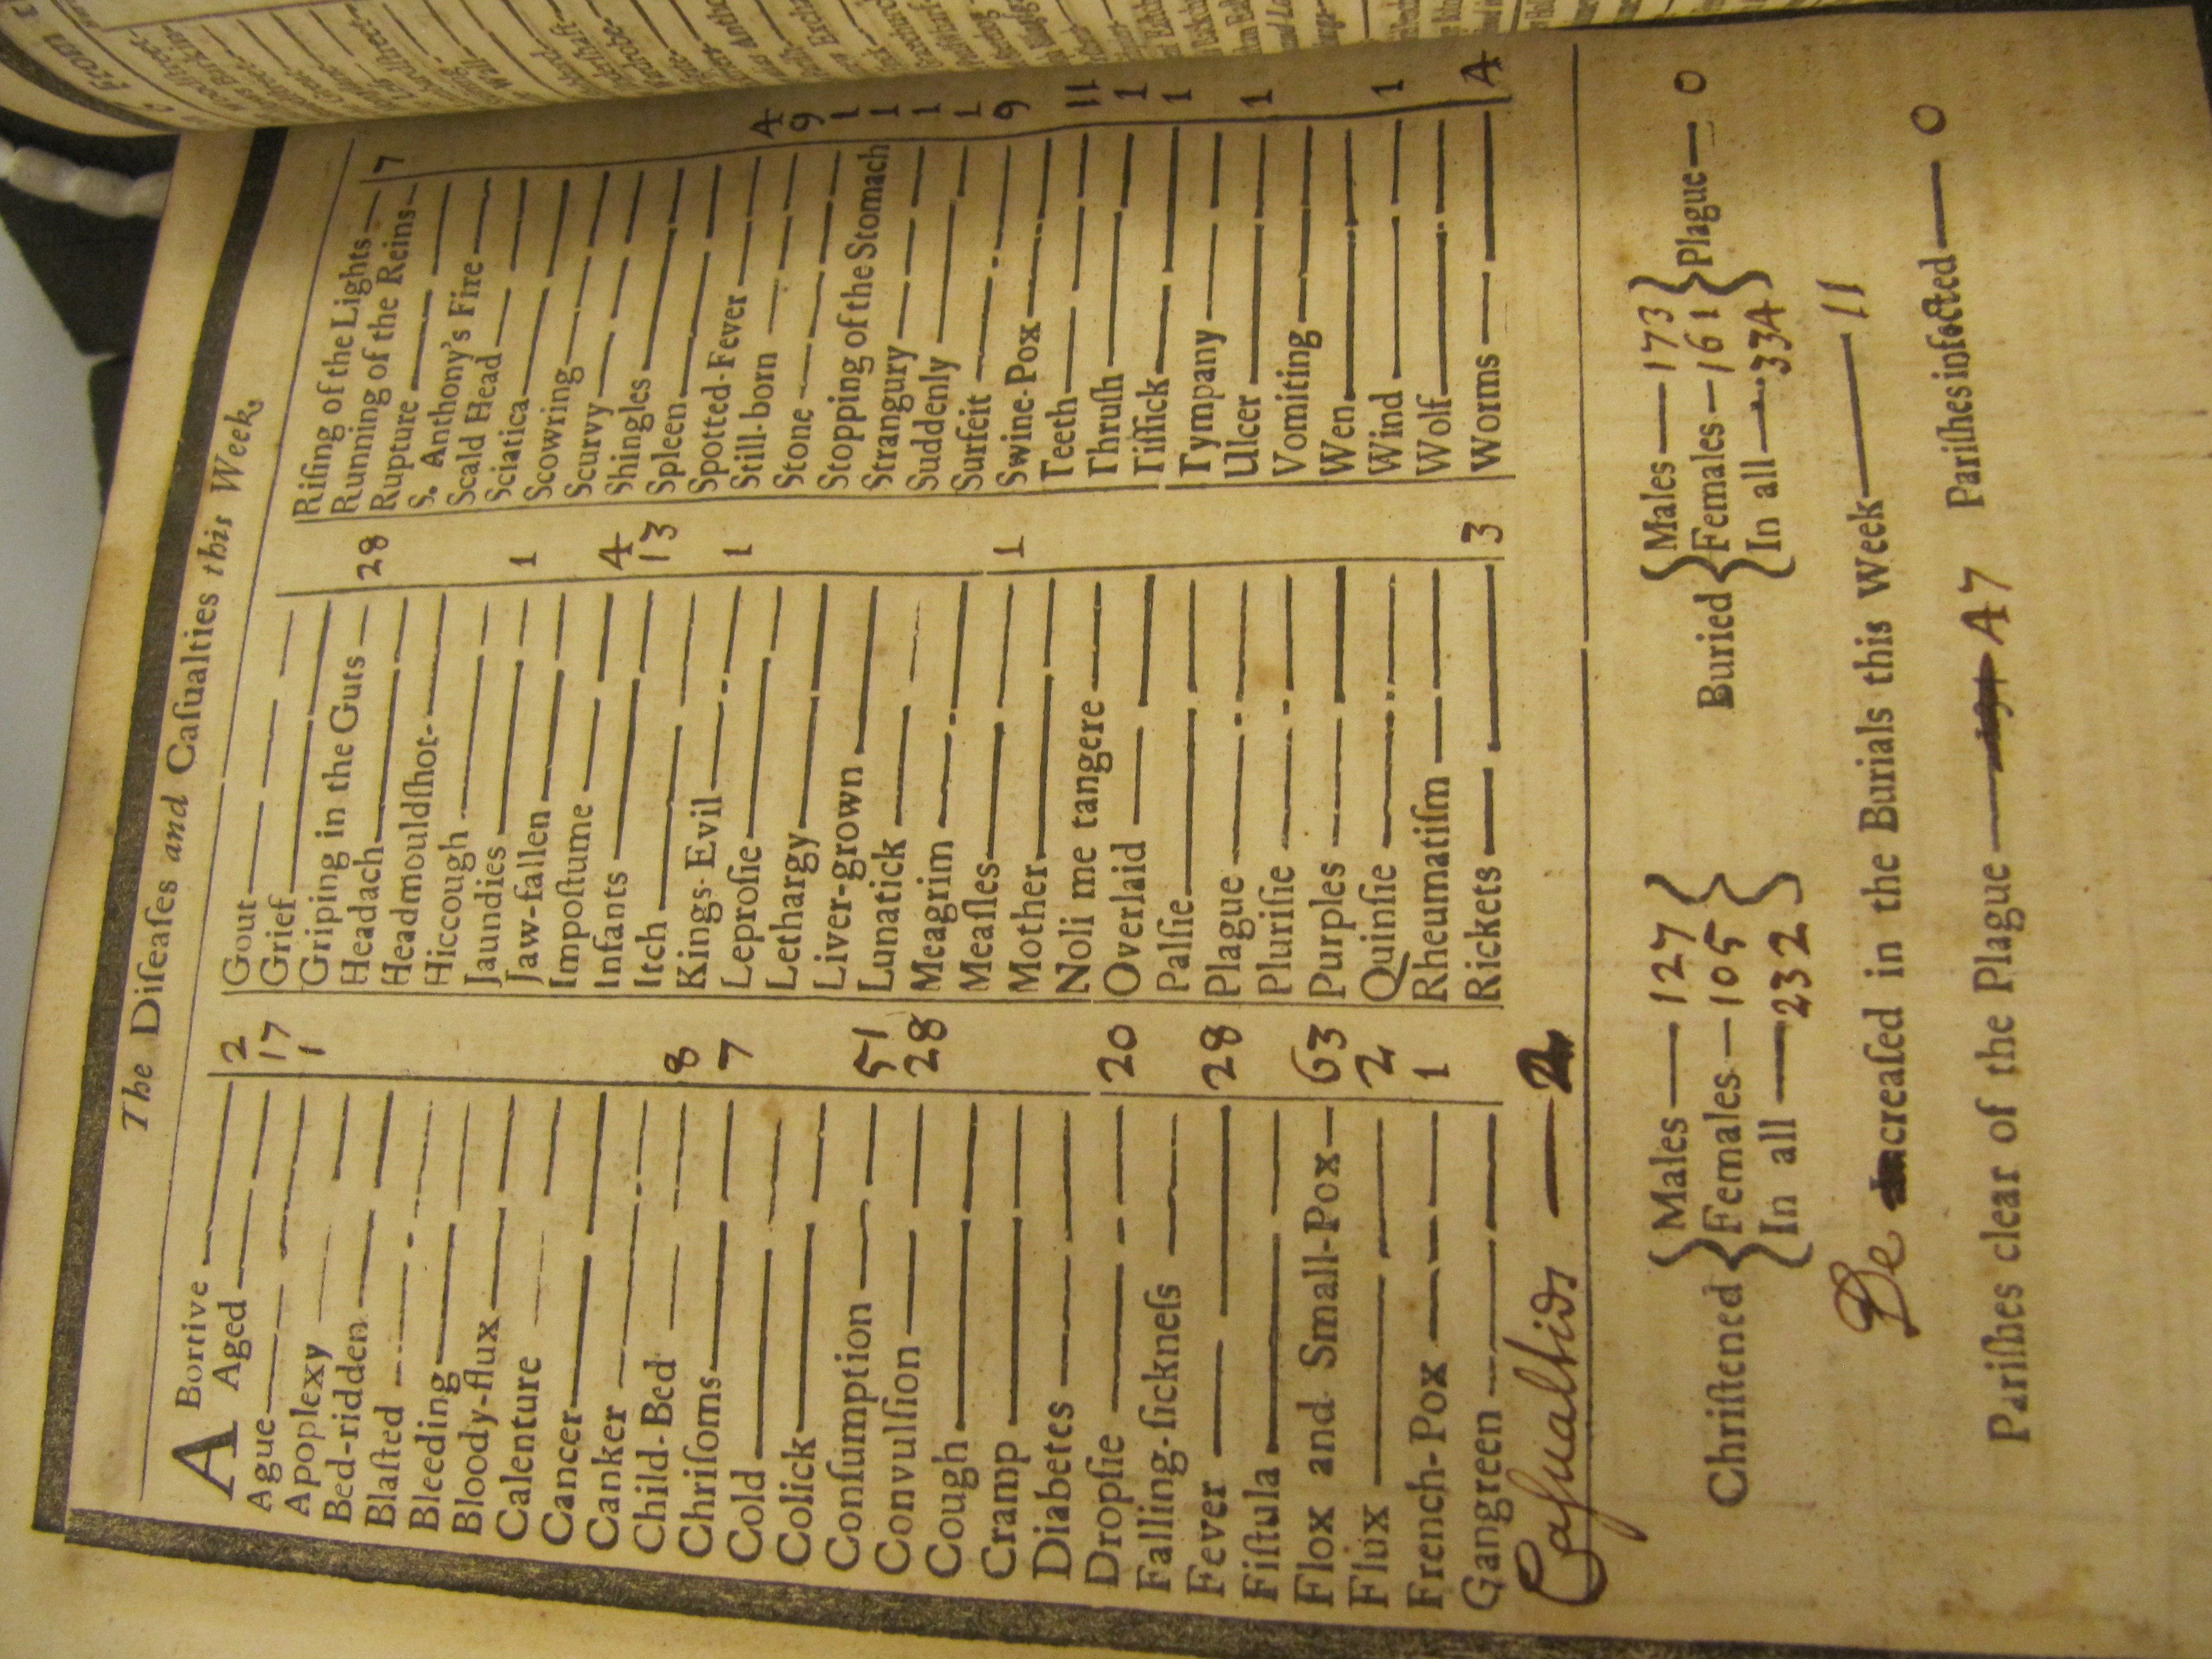 The Diſeaſes and Caſualties this Week.
ABortive — 2
Aged — 17
Ague — 1
Apoplexy
Bed-ridden
Blaſted
Bleeding
Bloody-flux
Calenture
Cancer
Canker
Child-Bed — 8
Chriſoms — 7
Cold
Colick
Conſumption — 51
Convulſion — 28
Cough
Cramp
Diabetes
Dropſie — 20
Falling-ſickneſs
Fever — 28
Fiſtula
Flox and Small-Pox — 63
Flux — 2
French-Pox — 1
Gangreen
Caſualtids — 2
Gout
Grief
Griping in the Guts — 28
Headach
Headmouldſhot
Hiccough
Jaundies — 1
Jaw-fallen
Impoſtume — 4
Infants — 13
Itch
Kings-Evil — 1
Leproſie
Lethargy
Liver-grown
Lunatick
Meagrim
Meaſles — 1
Mother
Noli me tangere
Overlaid
Palſie
Plague
Pluriſie
Purples
Quinſie
Rheumatiſm
Rickets — 3
Riſing of the Lights — 7
Running of the Reins
Rupture
S. Anthony's Fire
Scald Head
Sciatica
Scowring
Scurvy
Shingles
Spleen
Spotted-Fever — 4
Still-born — 9
Stone — 1
Stopping of the Stomach 1
Strangury — 1
Suddenly — 1
Surfeit — 9
Swine-Pox
Teeth — 11
Thruſh — 1
Tiſſick — 1
Tympany
Ulcer — 1
Vomiting
Wen
Wind — 1
Wolf
Worms — 4
Chriſtened { Males — 127 Females — 105 In all — 232 }
Buried { Males — 173 Females — 161 In all — 334 } Plague — 0
De creaſed in the Burials this Week — 11
Pariſhes clear of the Plague — 47 Pariſhes infected — 0